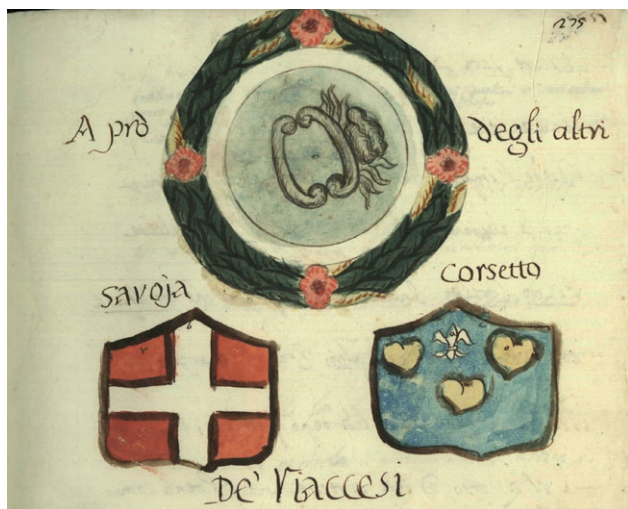 275
A prò degli altri
Savoja
Corsetto
De' Viaccesi